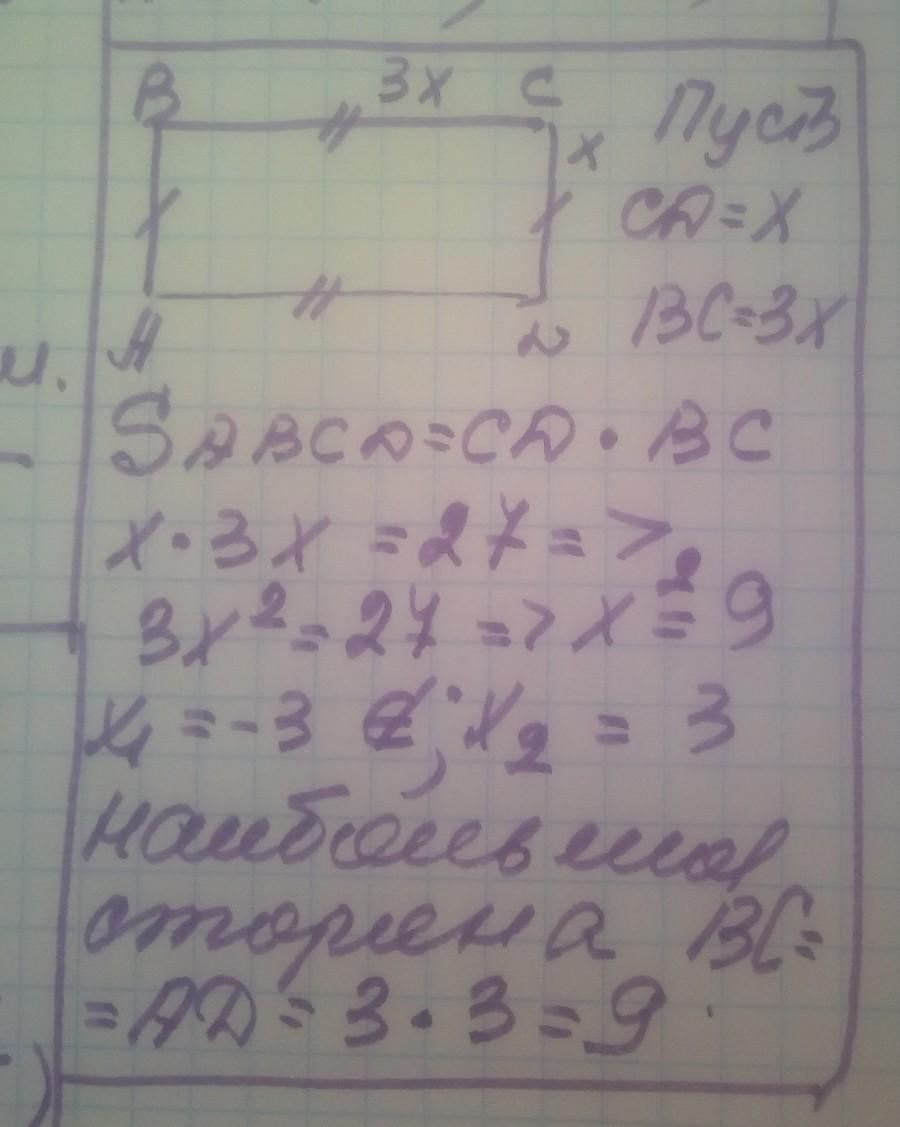 B 3x C
x Пусть
CD=x
A D BC=3x
и.
SABCD=CD·BC
x·3x=27=>
3x²=27=>x²=9
x₁=-3 ∉; x₂=3
наибольшая
сторона BC=
=AD=3·3=9